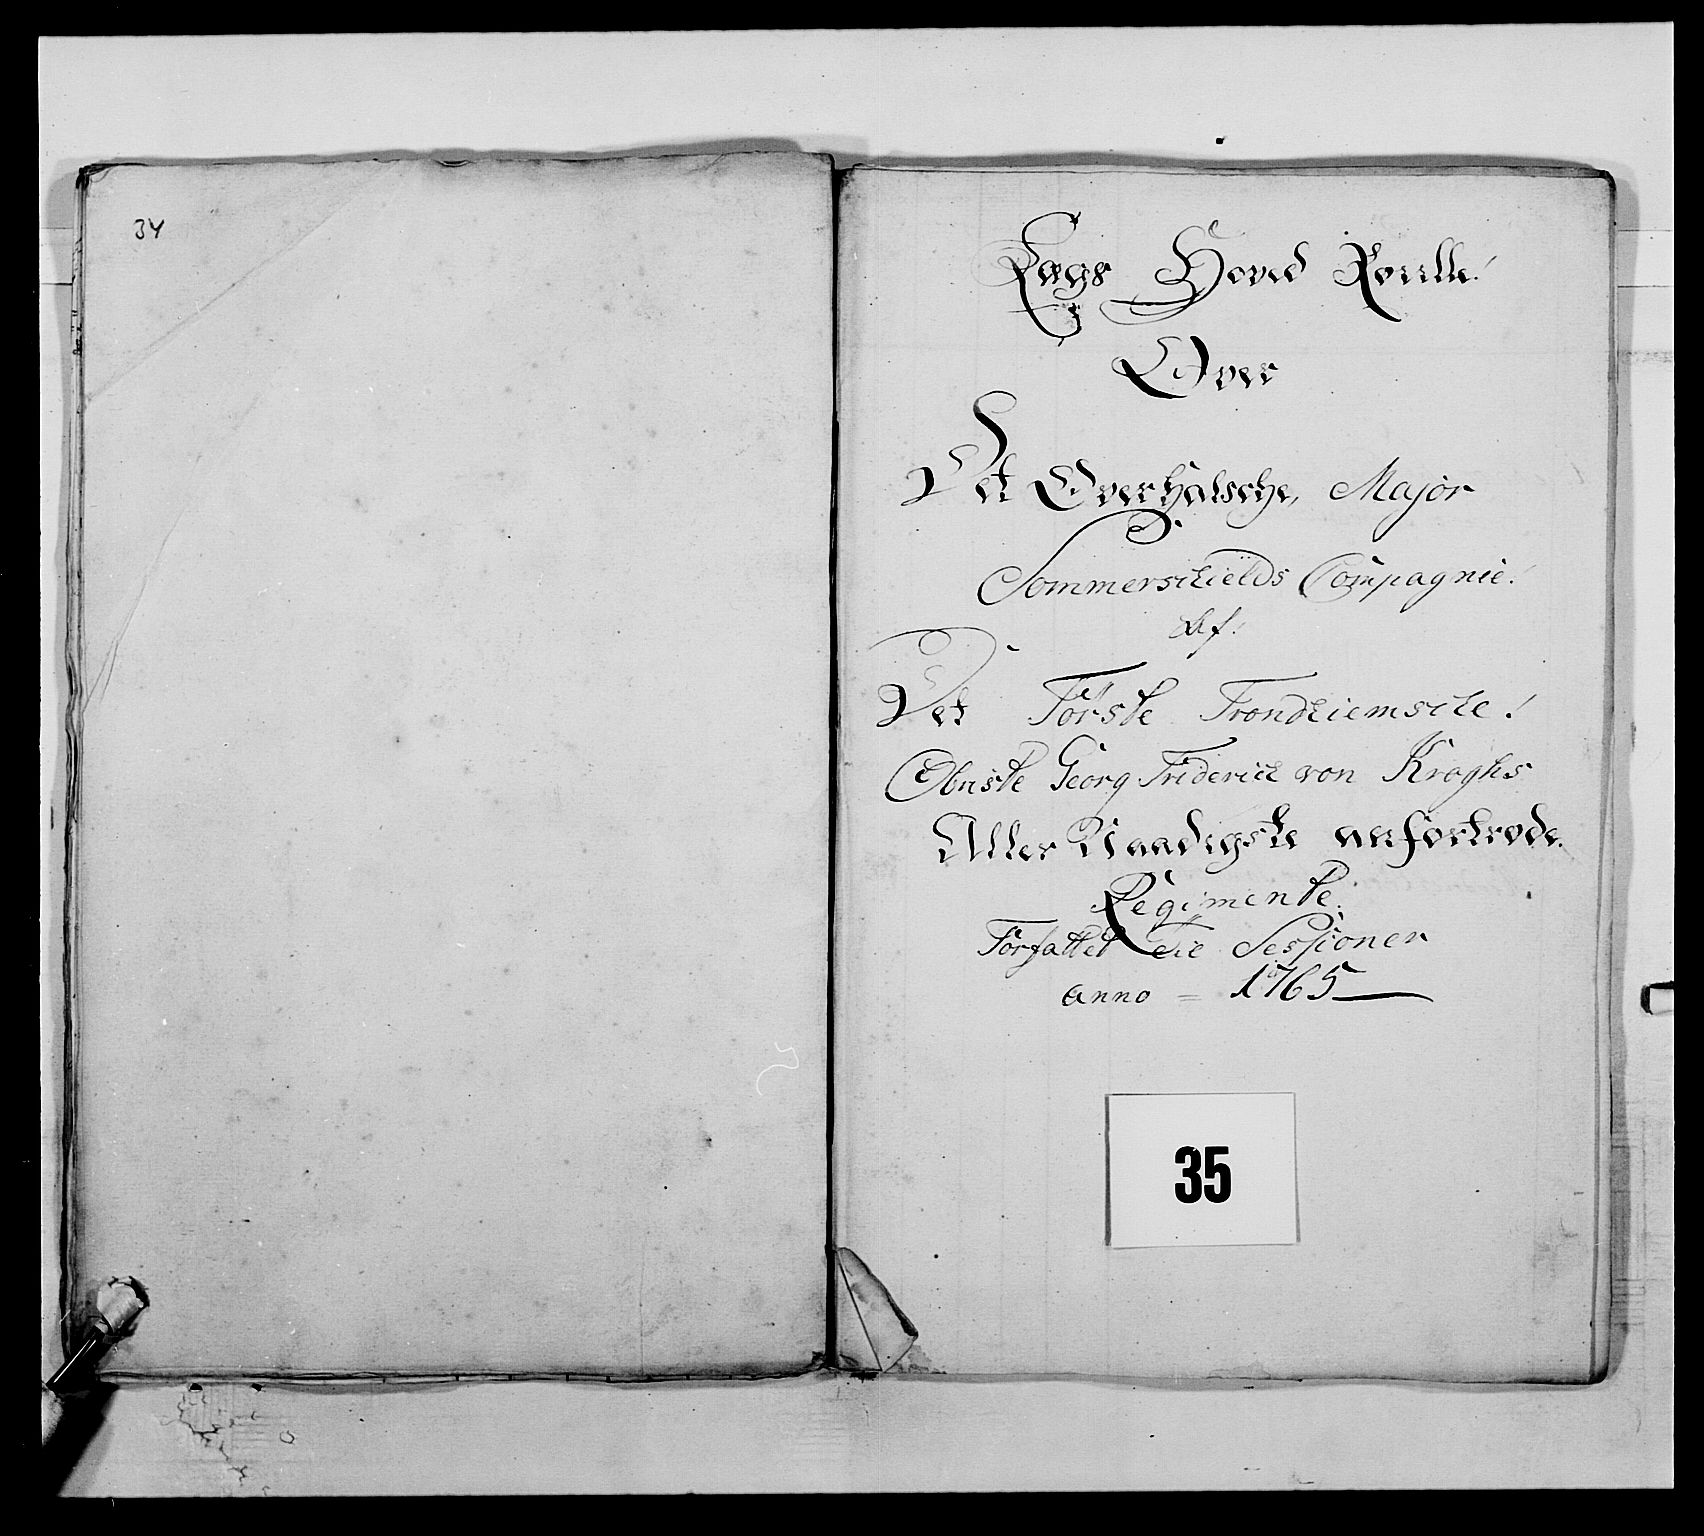 34
Lægs Hoved Roulle!
Over
Det Overhalsche, Major
Sommerschields Compagnie!
Af!
Det Förste Trondhiemske!
Obriste Georg Friderich von Kroghs
Aller Naadigste anfortrode
Regimente.
Forfattet die Sessioner
anno = 1765
35